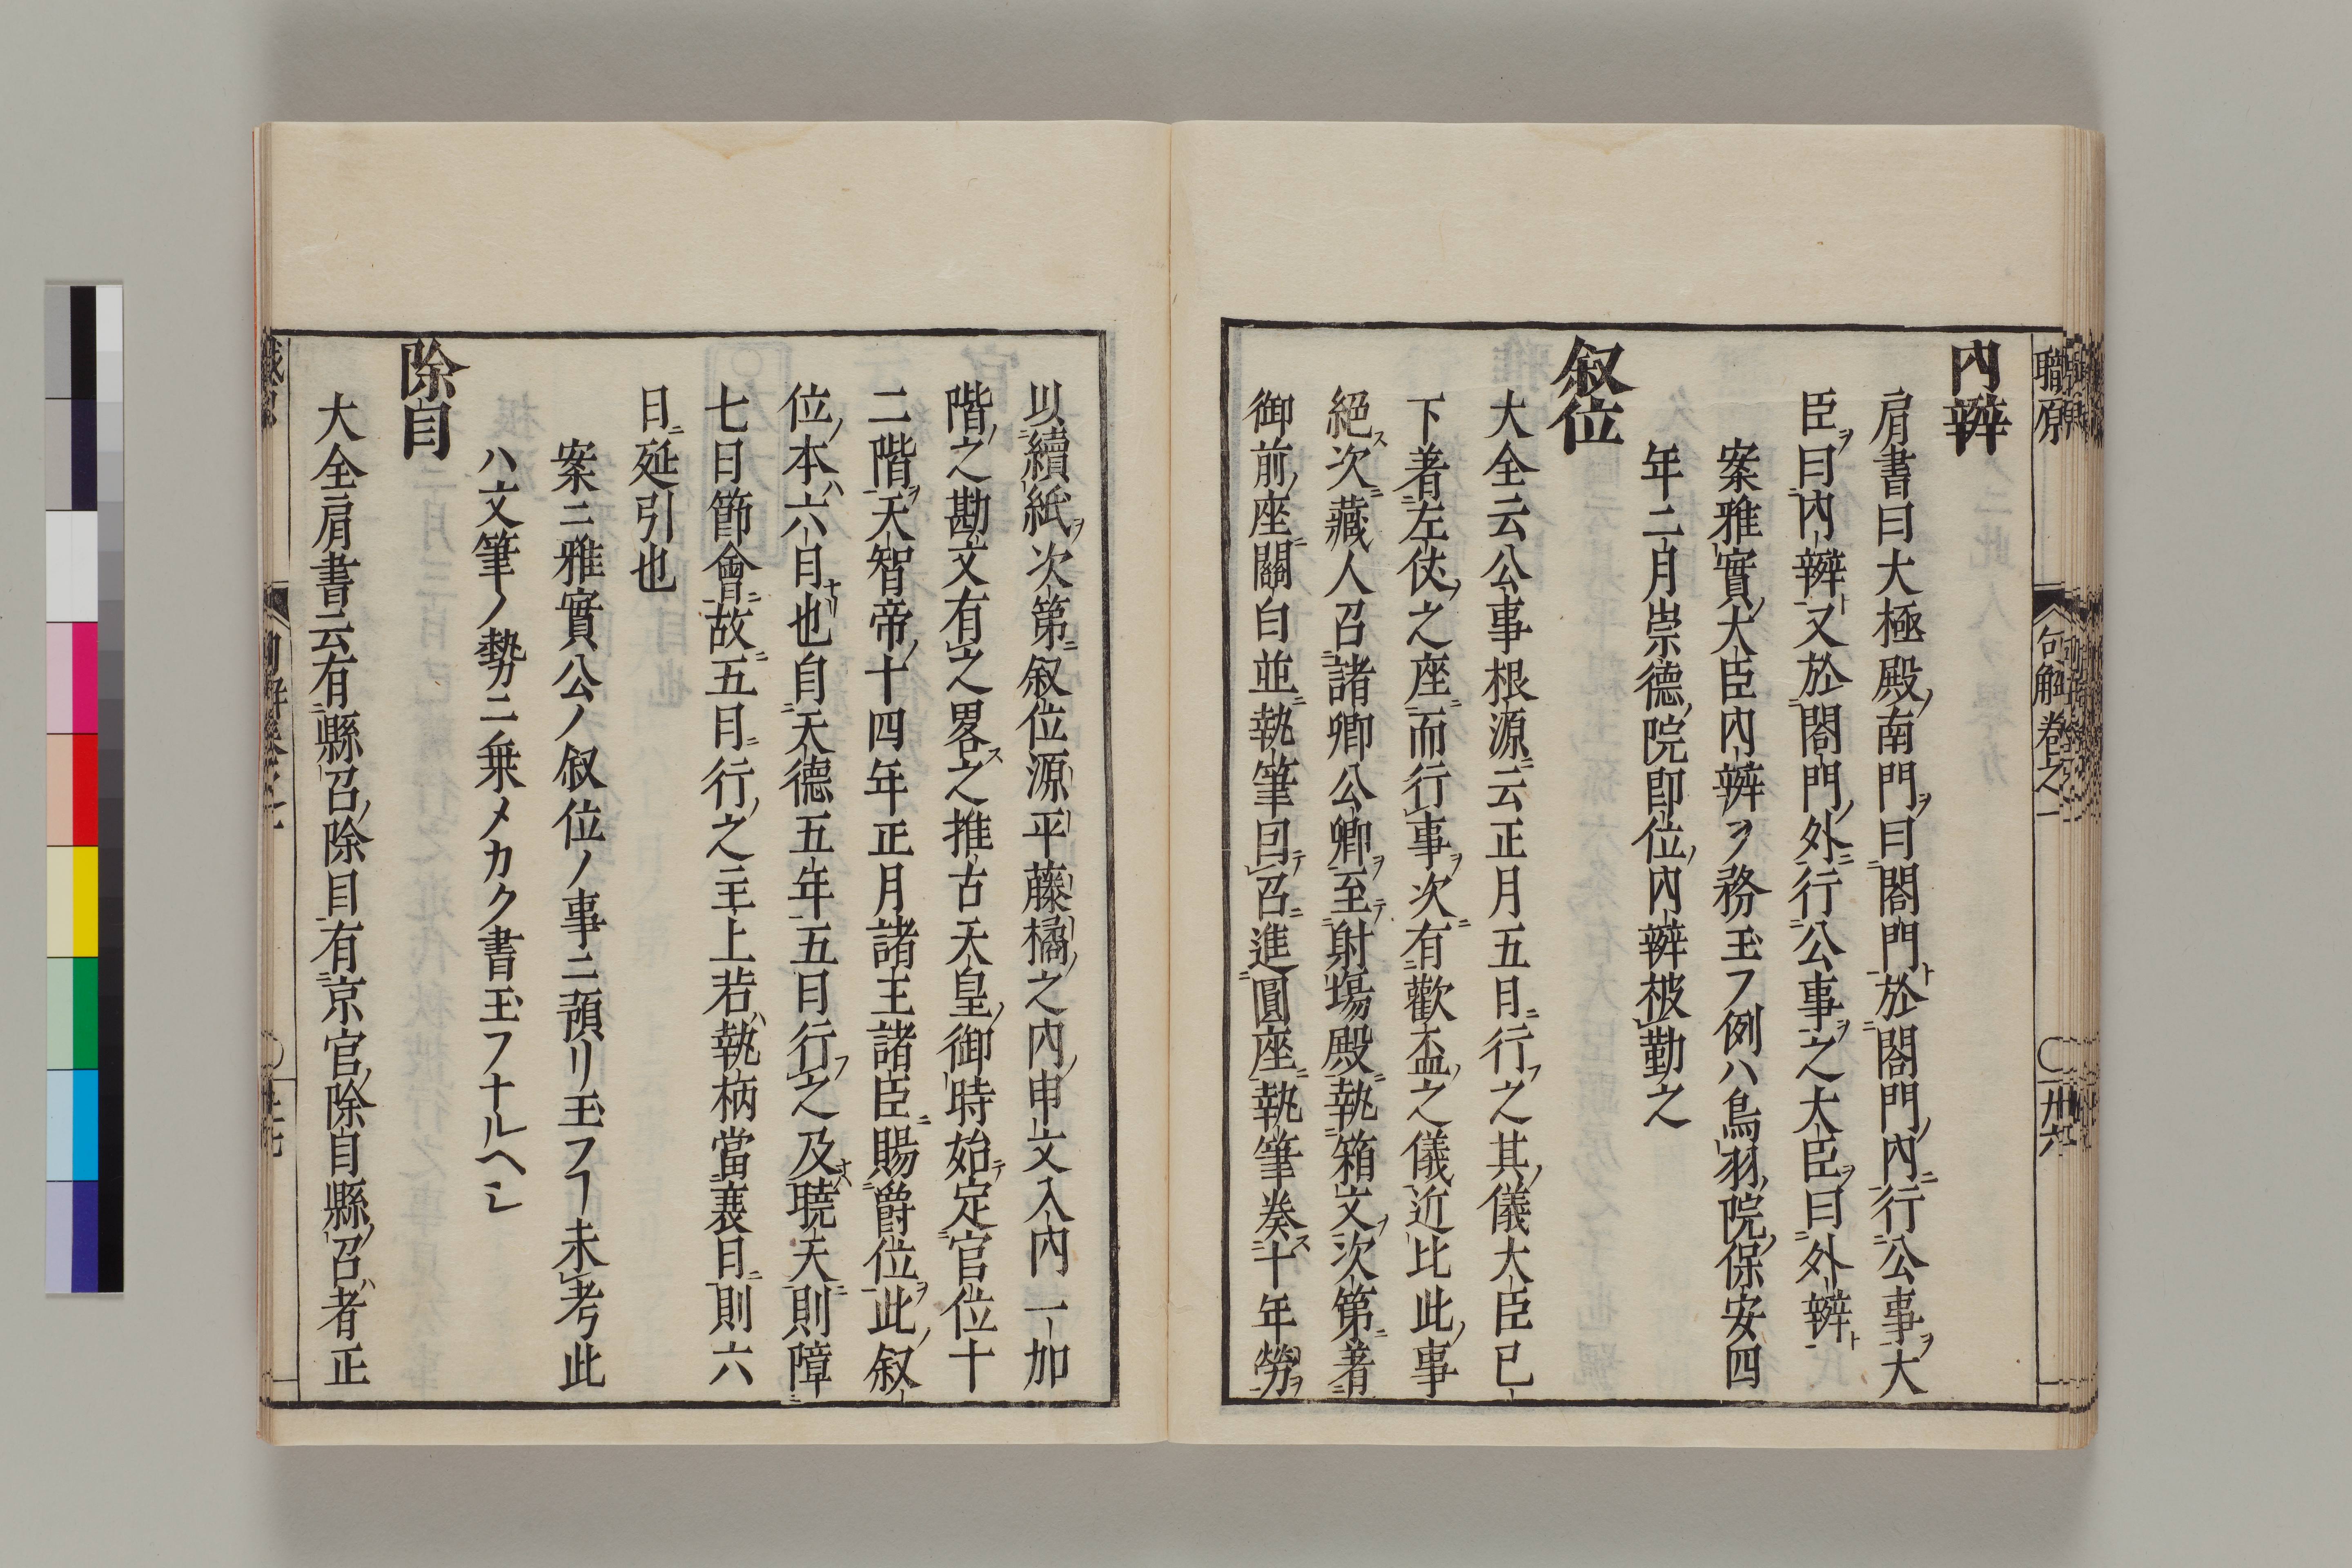 職原
句解卷之一
〇卅六
內辨
肩書曰大極殿ノ南門ヲ曰閤門ト於閤門ノ內ニ行公事ヲ大
臣ヲ曰內辨ト又於閤門ノ外ニ行公事ヲ之大臣ヲ曰外辨ト
案雅實ノ大臣內辨ヲ務玉フ例ハ鳥羽ノ院ノ保安四
年二月崇德ノ院即位ノ內辨被勤之
叙位
大全云公事根源ニ云正月五日ニ行フ之其ノ儀大臣已
下著左仗ノ之座ニ而行事ヲ次ニ有歡盃ノ之儀近比此ノ事
絕ス次ニ藏人召諸卿公卿ヲ至テ射場殿ニ執箱文ヲ次第ニ著
御前ノ座ニ關白並ニ執筆回テ召ニ進圓座ニ執筆奏ス十年勞ヲ
以續紙ヲ次第ニ叙位源平藤橘ノ之內ノ申文入內一加
階ノ之勘文有之畧ス之推古天皇ノ御時始テ定官位十
二階ヲ天智帝ノ十四年正月諸王諸臣ニ賜爵位ヲ此ノ叙
位ノ本ハ六日ナリ也自天德五年五日行フ之及曉天ニ則障
七日節會ニ故ニ五日ニ行ノ之主上若ハ執柄當衰日ニ則六
日ニ延引也
案ニ雅實公ノ叙位ノ事ニ預リ玉フヿ未考此
ハ文筆ノ勢ニ乗メカク書玉フナルヘシ
除目
大全肩書云有縣召ノ除目有京官ノ除目縣ノ召ハ者正